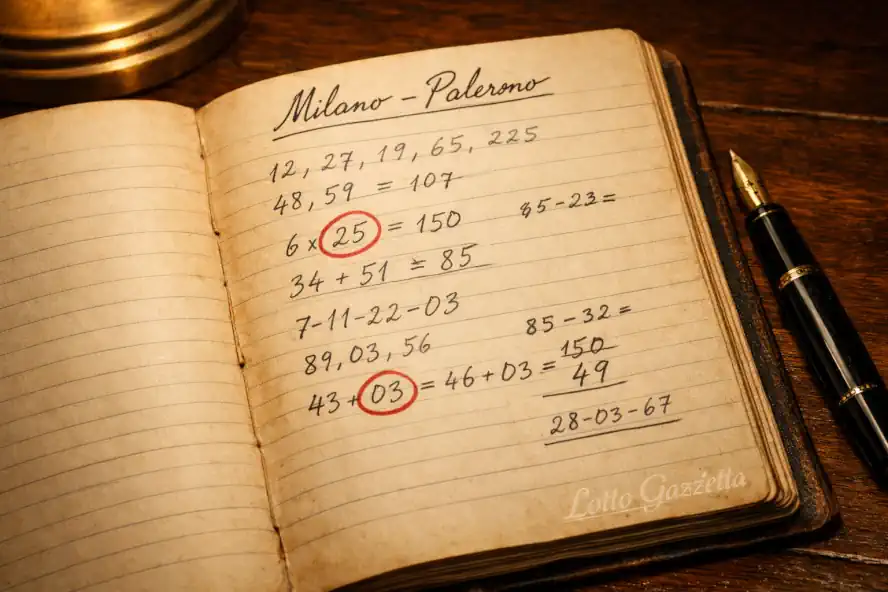 Milano - Palerono
12, 27, 19, 65, 225
48, 59 = 107
6 x 25 = 150
85-23=
34 + 51 = 85
7-11-22-03
85-32=
89, 03, 56
150
43 + 03 = 46 + 03 = 49
28-03-67
Lotto Gazzetta